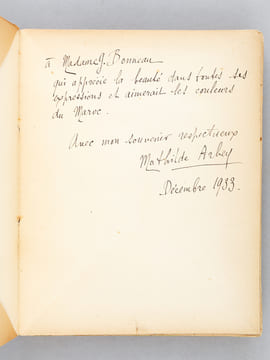 à Madame G. Bonneau
qui apprécie la beauté dans toutes ses
expressions et aimerait les couleurs
du Maroc.
Avec mon souvenir respectueux
Mathilde Arbey
Décembre 1933.